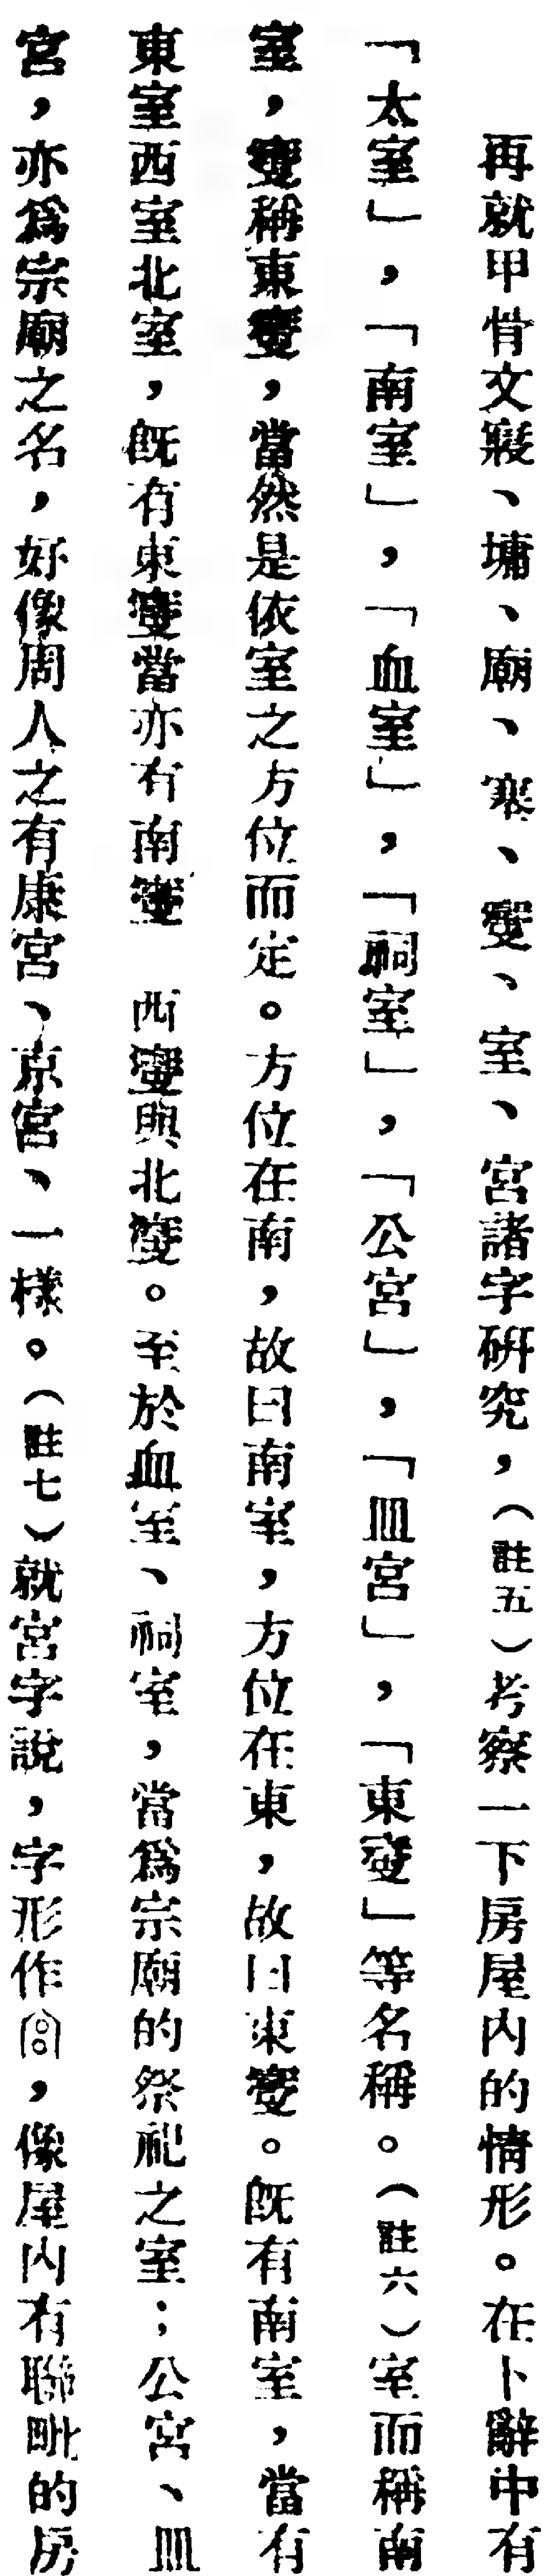 再就甲骨文寢、墉、廟、寒、、室、宮諸字研究,(註五)考察一下房屋內的情形。在卜辭中有
「太室」,「南室」,「血室」,「祠室」,「公宮」,「皿宮」,「東」等名稱。(註六)室而稱南
室,稱東,當然是依室之方位而定。方位在南,故曰南室,方位在東,故曰東。既有南室,當有
東室西室北室,既有東當亦有南 西與北。至於血室、祠室,當爲宗廟的祭祀之室;公宮、皿
宮,亦爲宗廟之名,好像周人之有康宮、京宮、一樣。(註七)就宮字說,字形作,像屋內有聯毗的房